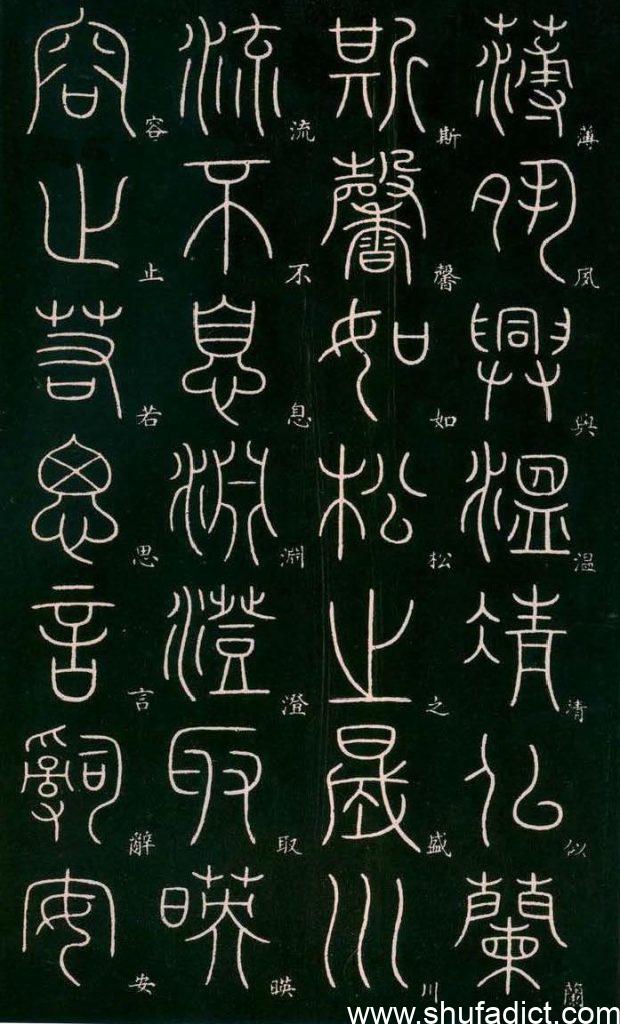 薄夙興溫清似蘭
斯馨如松之盛川
流不息淵澄取暎
容止若思言辭安
www.shufadict.com